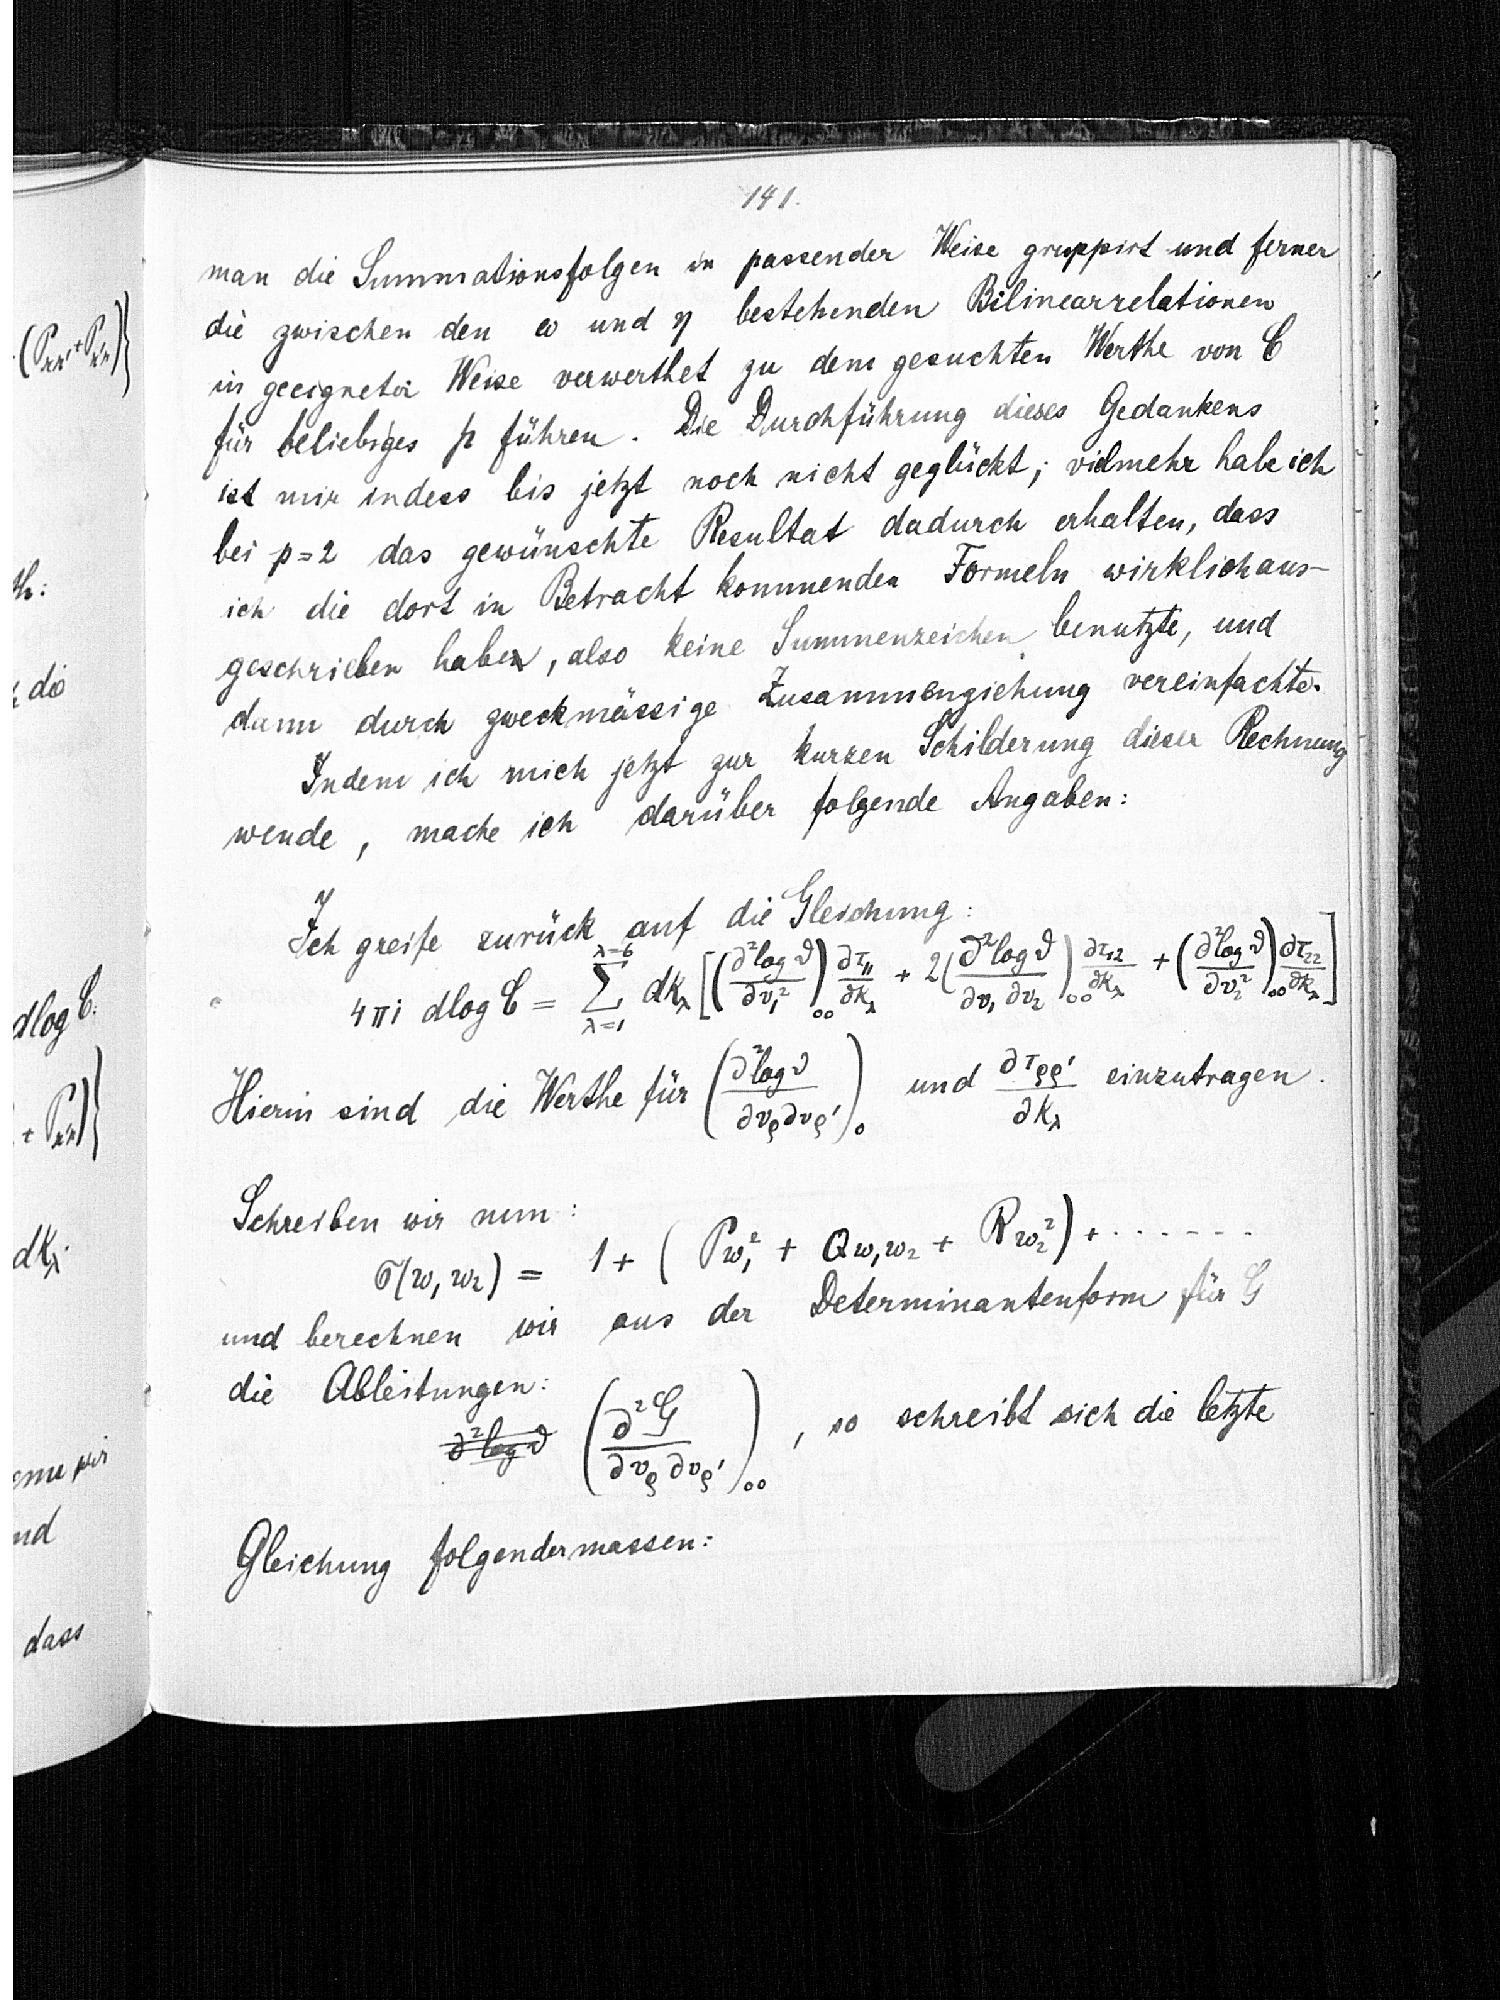 141.
man die Summationsfolgen in passender Weise gruppirt und ferner
die zwischen den ω und η bestehenden Bilinearrelationen
in geeigneter Weise verwerthet zu dem gesuchten Werthe von C
für beliebiges p führen. Die Durchführung dieses Gedankens
ist mir indess bis jetzt noch nicht geglückt; vielmehr habe ich
bei p=2 das gewünschte Resultat dadurch erhalten, dass
ich die dort in Betracht kommenden Formeln wirklich aus-
geschrieben habe, also keine Summenzeichen benutzte, und
dann durch zweckmässige Zusammenziehung vereinfachte.
Indem ich mich jetzt zur kurzen Schilderung dieser Rechnung
wende, mache ich darüber folgende Angaben:
Ich greife zurück auf die Gleichung:
4πi dlog C = ∑_{λ=1}^{λ=6} dk_λ [(∂² log ϑ/∂v₁²)₀₀ ∂τ₁₁/∂k_λ + 2(∂² log ϑ/∂v₁ ∂v₂)₀₀ ∂τ₁₂/∂k_λ + (∂² log ϑ/∂v₂²)₀₀ ∂τ₂₂/∂k_λ]
Hierin sind die Werthe für (∂² log ϑ/∂v_ρ ∂v_ρ')₀ und ∂τ_ρρ'/∂k_λ einzutragen.
Schreiben wir nun:
σ(w₁ w₂) = 1 + (Pw₁² + Qw₁w₂ + Rw₂²) + ·······
und berechnen wir aus der Determinantenform für G
die Ableitungen:
∂² log ϑ (∂² G/∂v_ρ ∂v_ρ')₀₀, so schreibt sich die letzte
Gleichung folgendermassen:
(P_κκ' + P_κ'κ)}
th:
die
dlog C:
+ P_κ'κ)}
dk_λ.
wir
nd
dass